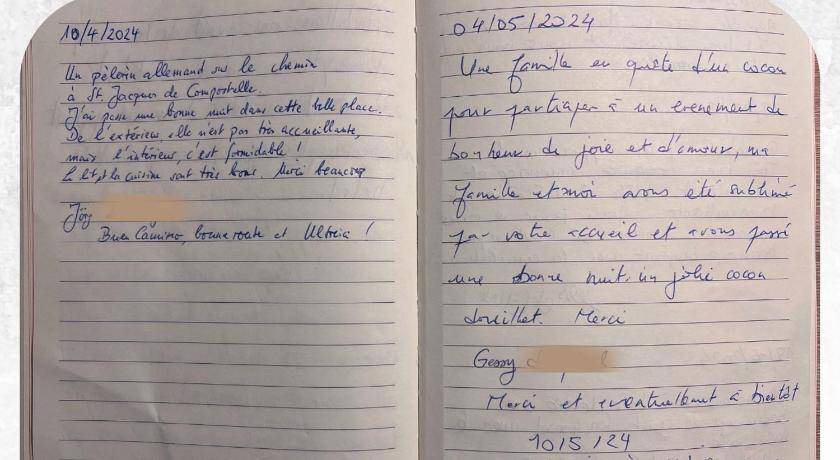 10/4/2024
Un pèlerin allemand sur le chemin
à St. Jacques de Compostelle.
J'ai passé une bonne nuit dans cette belle place.
De l'extérieur, elle n'est pas très accueillante,
mais l'intérieur, c'est formidable !
Le lit et la cuisine sont très bons. Merci beaucoup
Jörg
Buen Camino, bonne route et Ultreia !
04/05/2024
Une famille en quête d'un cocon
pour partager à un evenement de
bonheur, de joie et d'amour, ma
famille et moi avons été sublimé
par votre accueil et avons passé
une bonne nuit. Un jolie cocon
douillet. Merci
Gessy
Merci et eventuellement à bientôt
10/5/24